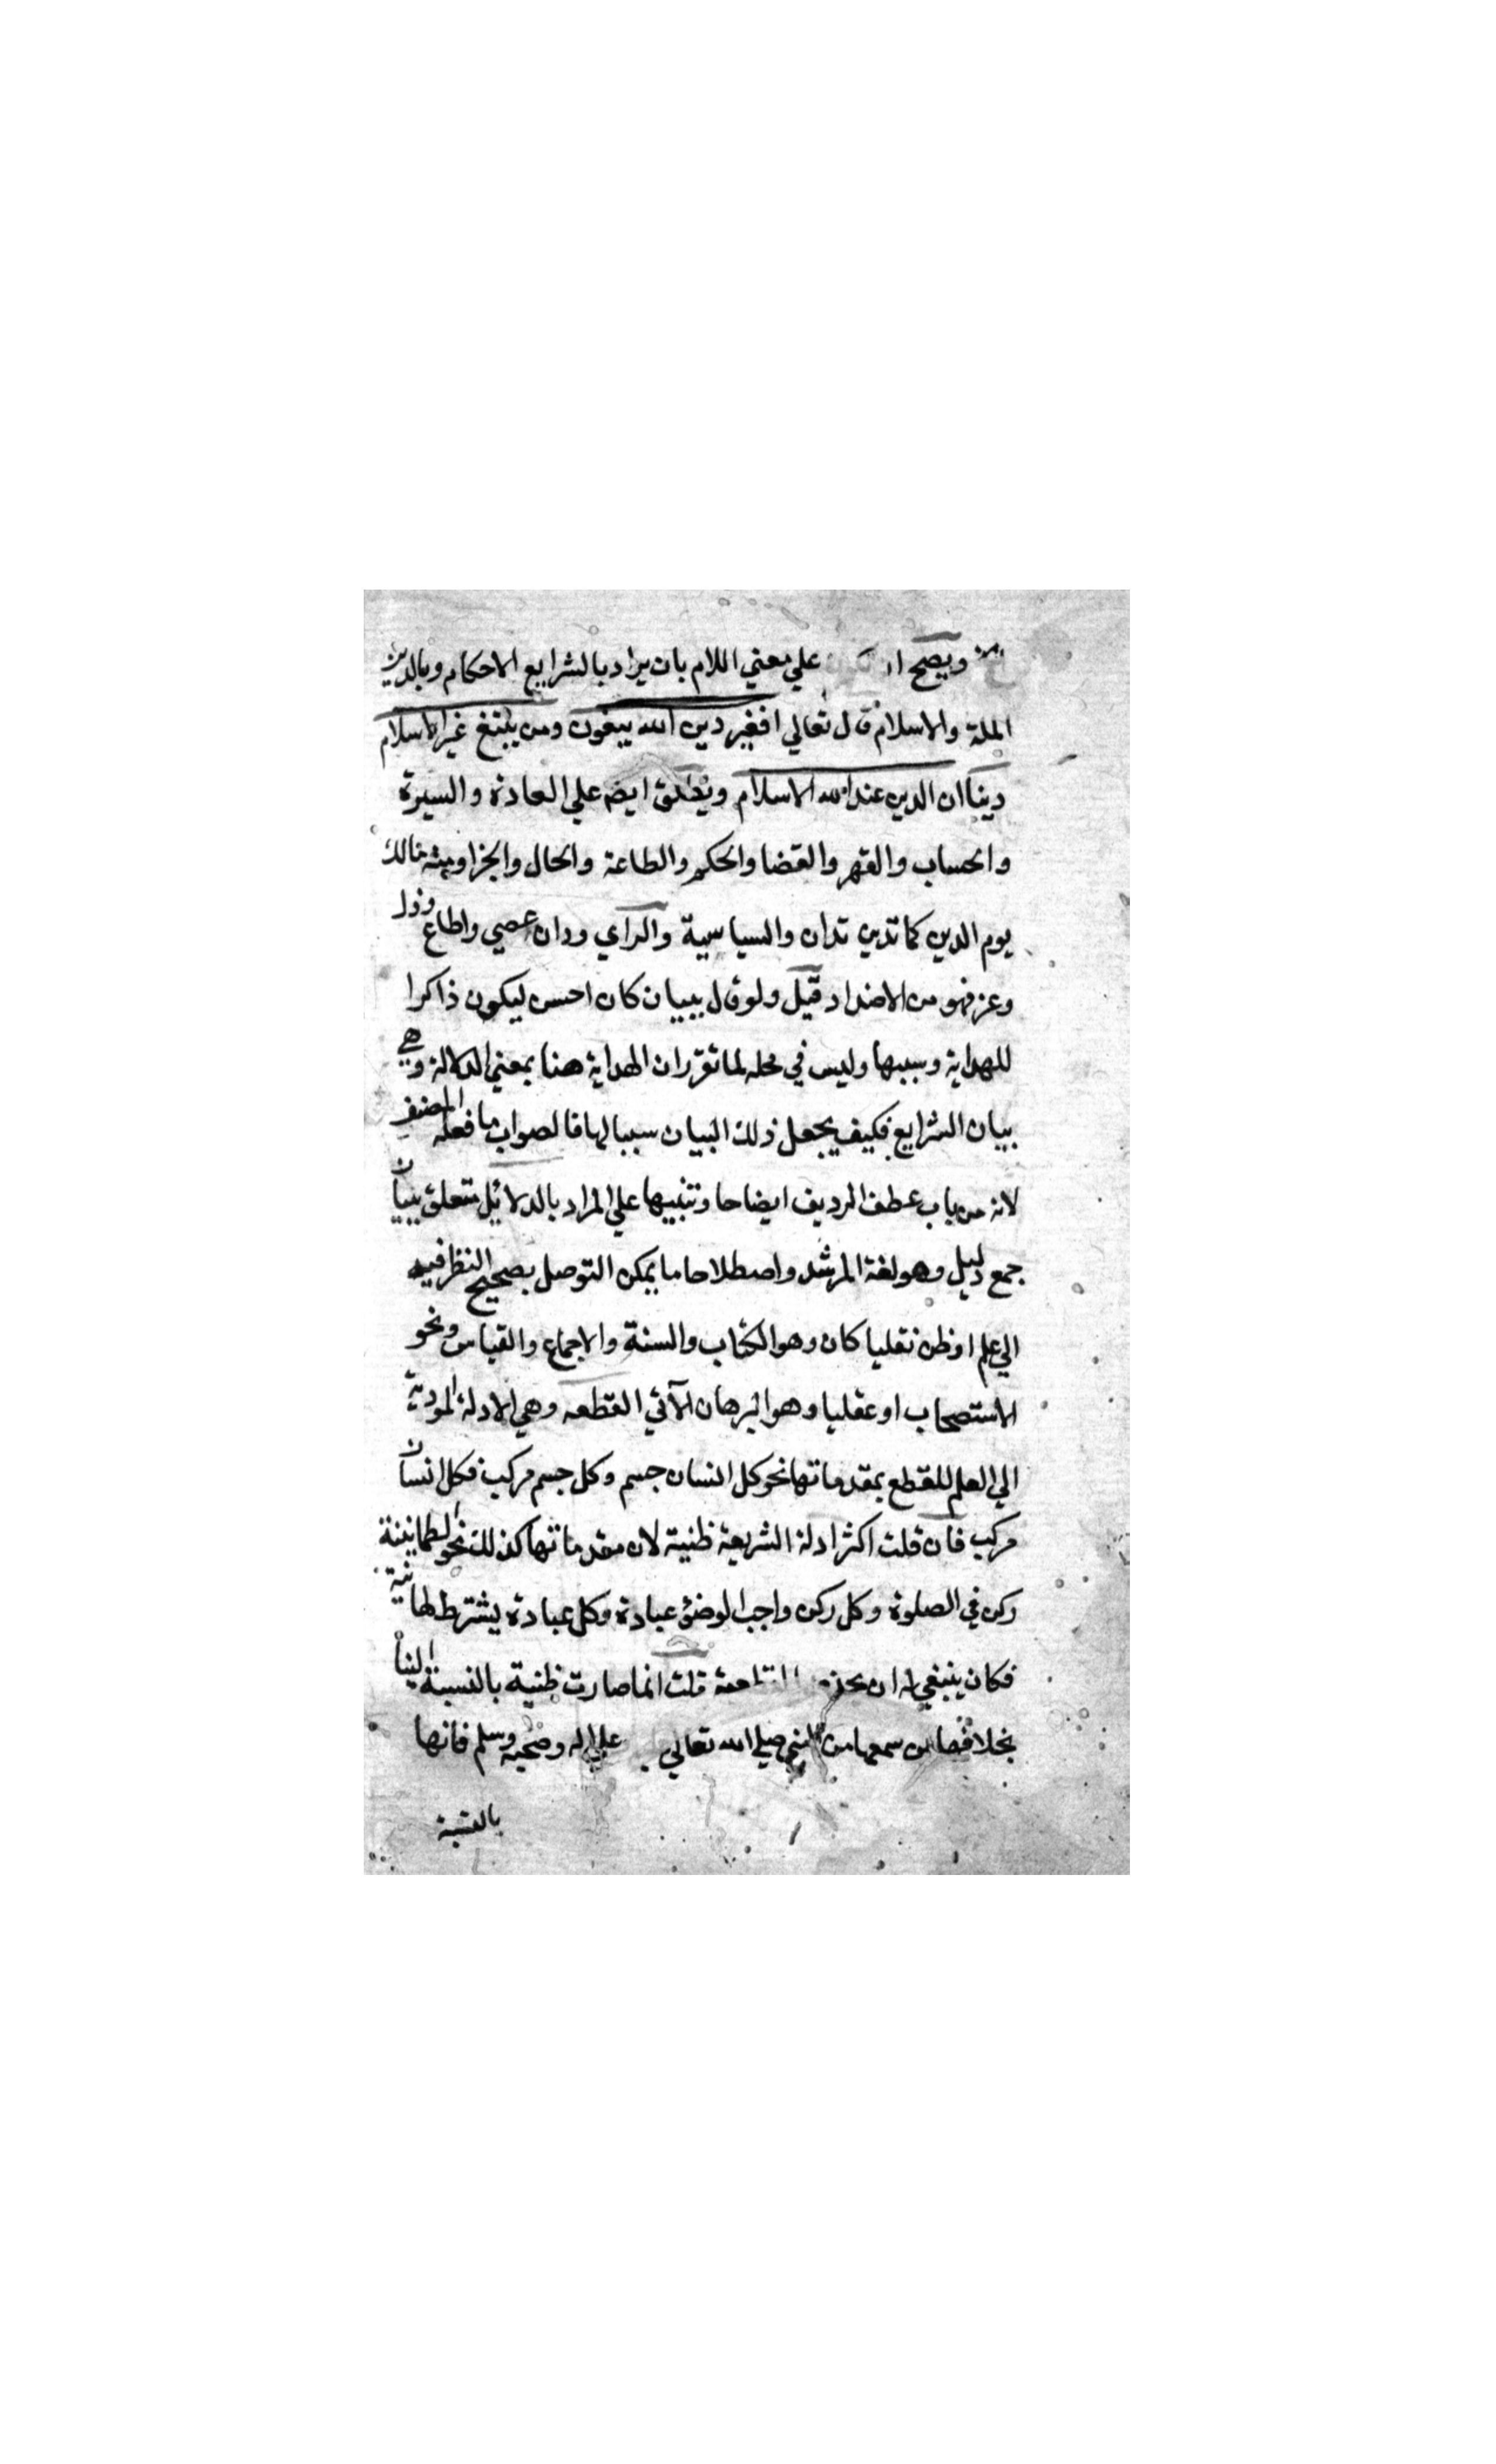 ويصح علي معني اللام بان يراد بالشرايع الاحكام وبالدين
الملة والاسلام قال تعالي افغير دين الله يبغون ومن يبتغ غير الاسلام
دينا ان الدين عند الله الاسلام ويطلق ايضه علي العادة والسيرة
والحساب والقهر والقضا والحكم والطاعة والحال والجزا ومنه مالك
يوم الدين كما تدين تدان والسياسية والراي ودان عصي واطاع وذل
وعز فهو من الاضداد قيل ولو قال ببيان كان احسن ليكون ذاكرا
للهداية وسببها وليس في محله لما تقرر ان الهداية هنا بمعني الدلالة وهي
بيان الشرايع فكيف يجعل ذلك البيان سببا لها فالصواب ما فعله المصنف
لانه من باب عطف الرديف ايضاحا وتنبيها علي المراد بالدلائل متعلق ببيان
جمع دليل وهو لغة المرشد واصطلاحا ما يمكن التوصل بصحيح النظر فيه
الي علم او ظن نقليا كان وهو الكتاب والسنة والاجماع والقياس ونحو
الاستصحاب او عقليا وهو البرهان الآتي القطعه وهي الادلة المودية
الي العلم للقطع بمقدماتها نحو كل انسان جسم وكل جسم مركب فكل انسان
مركب فان قلت اكثر ادلة الشريعة ظنية لان مقدماتها كذلك نحو الطمانينة
ركن في الصلوة وكل ركن واجب الوضؤ عبادة وكل عبادة يشترط لها نية
فكان ينبغي له ان قلت انما صارت ظنية بالنسبة الينا
بخلافها من سمعها من النبي صلي الله تعالي عليه واله وصحبه وسلم فانها
بالنسبة